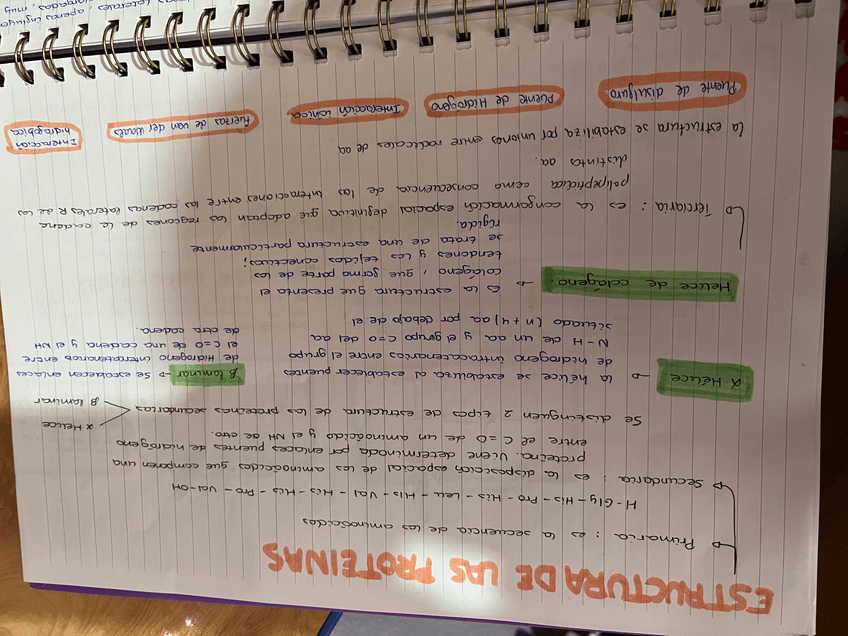 ESTRUCTURA DE LAS PROTEINAS
→ Primaria : es la secuencia de los aminoácidos
H - Gly - His - Pro - His - Leu - His - Val - His - His - Pro - Val - OH
→ Secundaria : es la disposición espacial de los aminoácidos que componen una
proteína. Viene determinada por enlaces puentes de hidrógeno
entre el C=O de un aminoácido y el NH de otro.
Se distinguen 2 tipos de estructura de las proteínas secundarias
α Hélice
β laminar
α Hélice → la hélice se estabiliza al establecer puentes
de hidrógeno intracatenarios entre el grupo
N-H de un aa y el grupo C=O del aa
situado (n+4) aa por debajo de el
β laminar → se establecen enlaces
de Hidrógeno intercatenarios entre
el C=O de una cadena y el NH
de otra cadena.
Hélice de colágeno. → Es la estructura que presenta el
colágeno, que forma parte de los
tendones y los tejidos conectivos;
se trata de una estructura particularmente
rígida.
→ Terciaria : es la conformación espacial definitiva que adoptan las regiones de la cadena
polipeptídica como consecuencia de las interaciones entre las cadenas laterales R de los
distintos aa.
La estructura se estabiliza por uniones entre radicales de aa
Puente de disulfuro
Puente de Hidrógeno
Interacción iónica
Fuerzas de van der Waals
Interacción
hidrofóbica
laterales, muy
apenas influyen